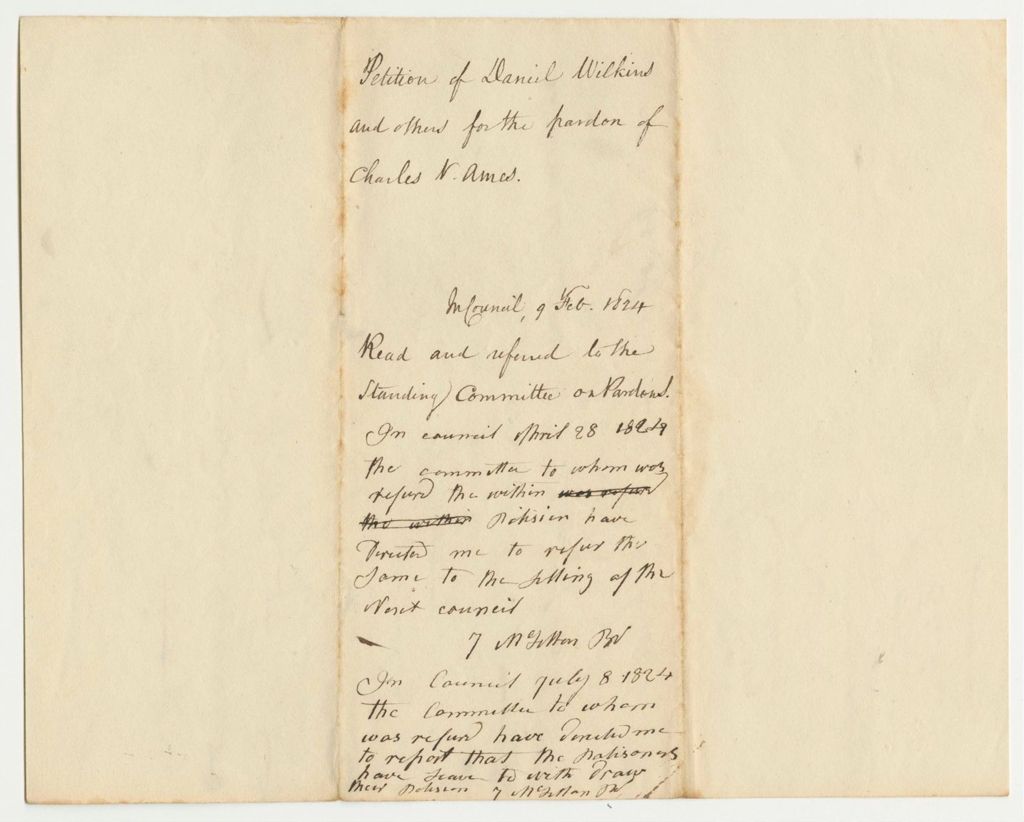 Petition of Daniel Wilkins
and others for the pardon of
Charles N. Ames.
In Council, 9 Feb. 1824
Read and referred to the
Standing Committee on Pardons.
In council April 28 1824
the committee to whom was
refured the within was refured
the within Petision have
Directed me to refur the
Same to the sitting of the
Next council
In Council July 8 1824
the Committee to whom
was refured have directed me
to report that the Patisoners
have Leave to with Draw
their Petision